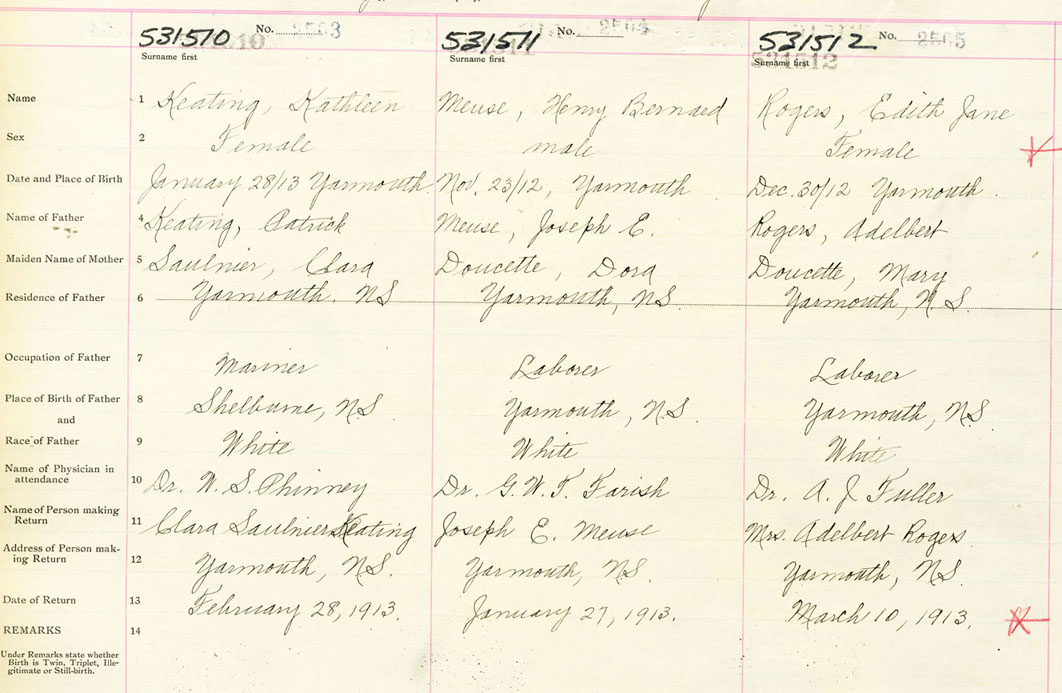 531510 No. 2503 531511 No. 2504 531512 No. 2505
Surname first Surname first Surname first
531512
Name 1 Keating, Kathleen Meuse, Henry Bernard Rogers, Edith Jane
Sex 2 Female male Female
Date and Place of Birth January 28/13 Yarmouth. Nov. 23/12, Yarmouth Dec. 30/12 Yarmouth.
Name of Father 4 Keating, Patrick Meuse, Joseph E. Rogers, Adelbert
Maiden Name of Mother 5 Saulnier, Clara Doucette, Dora Doucette, Mary
Residence of Father 6 Yarmouth. NS Yarmouth, NS. Yarmouth, N.S.
Occupation of Father 7 Mariner Laborer Laborer
Place of Birth of Father 8 Shelburne, NS. Yarmouth, N.S. Yarmouth, NS
and
Race of Father 9 White White White
Name of Physician in
attendance 10 Dr. W. S. Phinney Dr. G. W. T. Farish Dr. A. J Fuller
Name of Person making
Return 11 Clara Saulnier Keating Joseph E. Meuse Mrs. Adelbert Rogers.
Address of Person mak-
ing Return 12 Yarmouth, NS. Yarmouth, NS. Yarmouth, NS.
Date of Return 13 February 28, 1913. January 27, 1913. March 10, 1913.
REMARKS 14
Under Remarks state whether
Birth is Twin, Triplet, Ille-
gitimate or Still-birth.